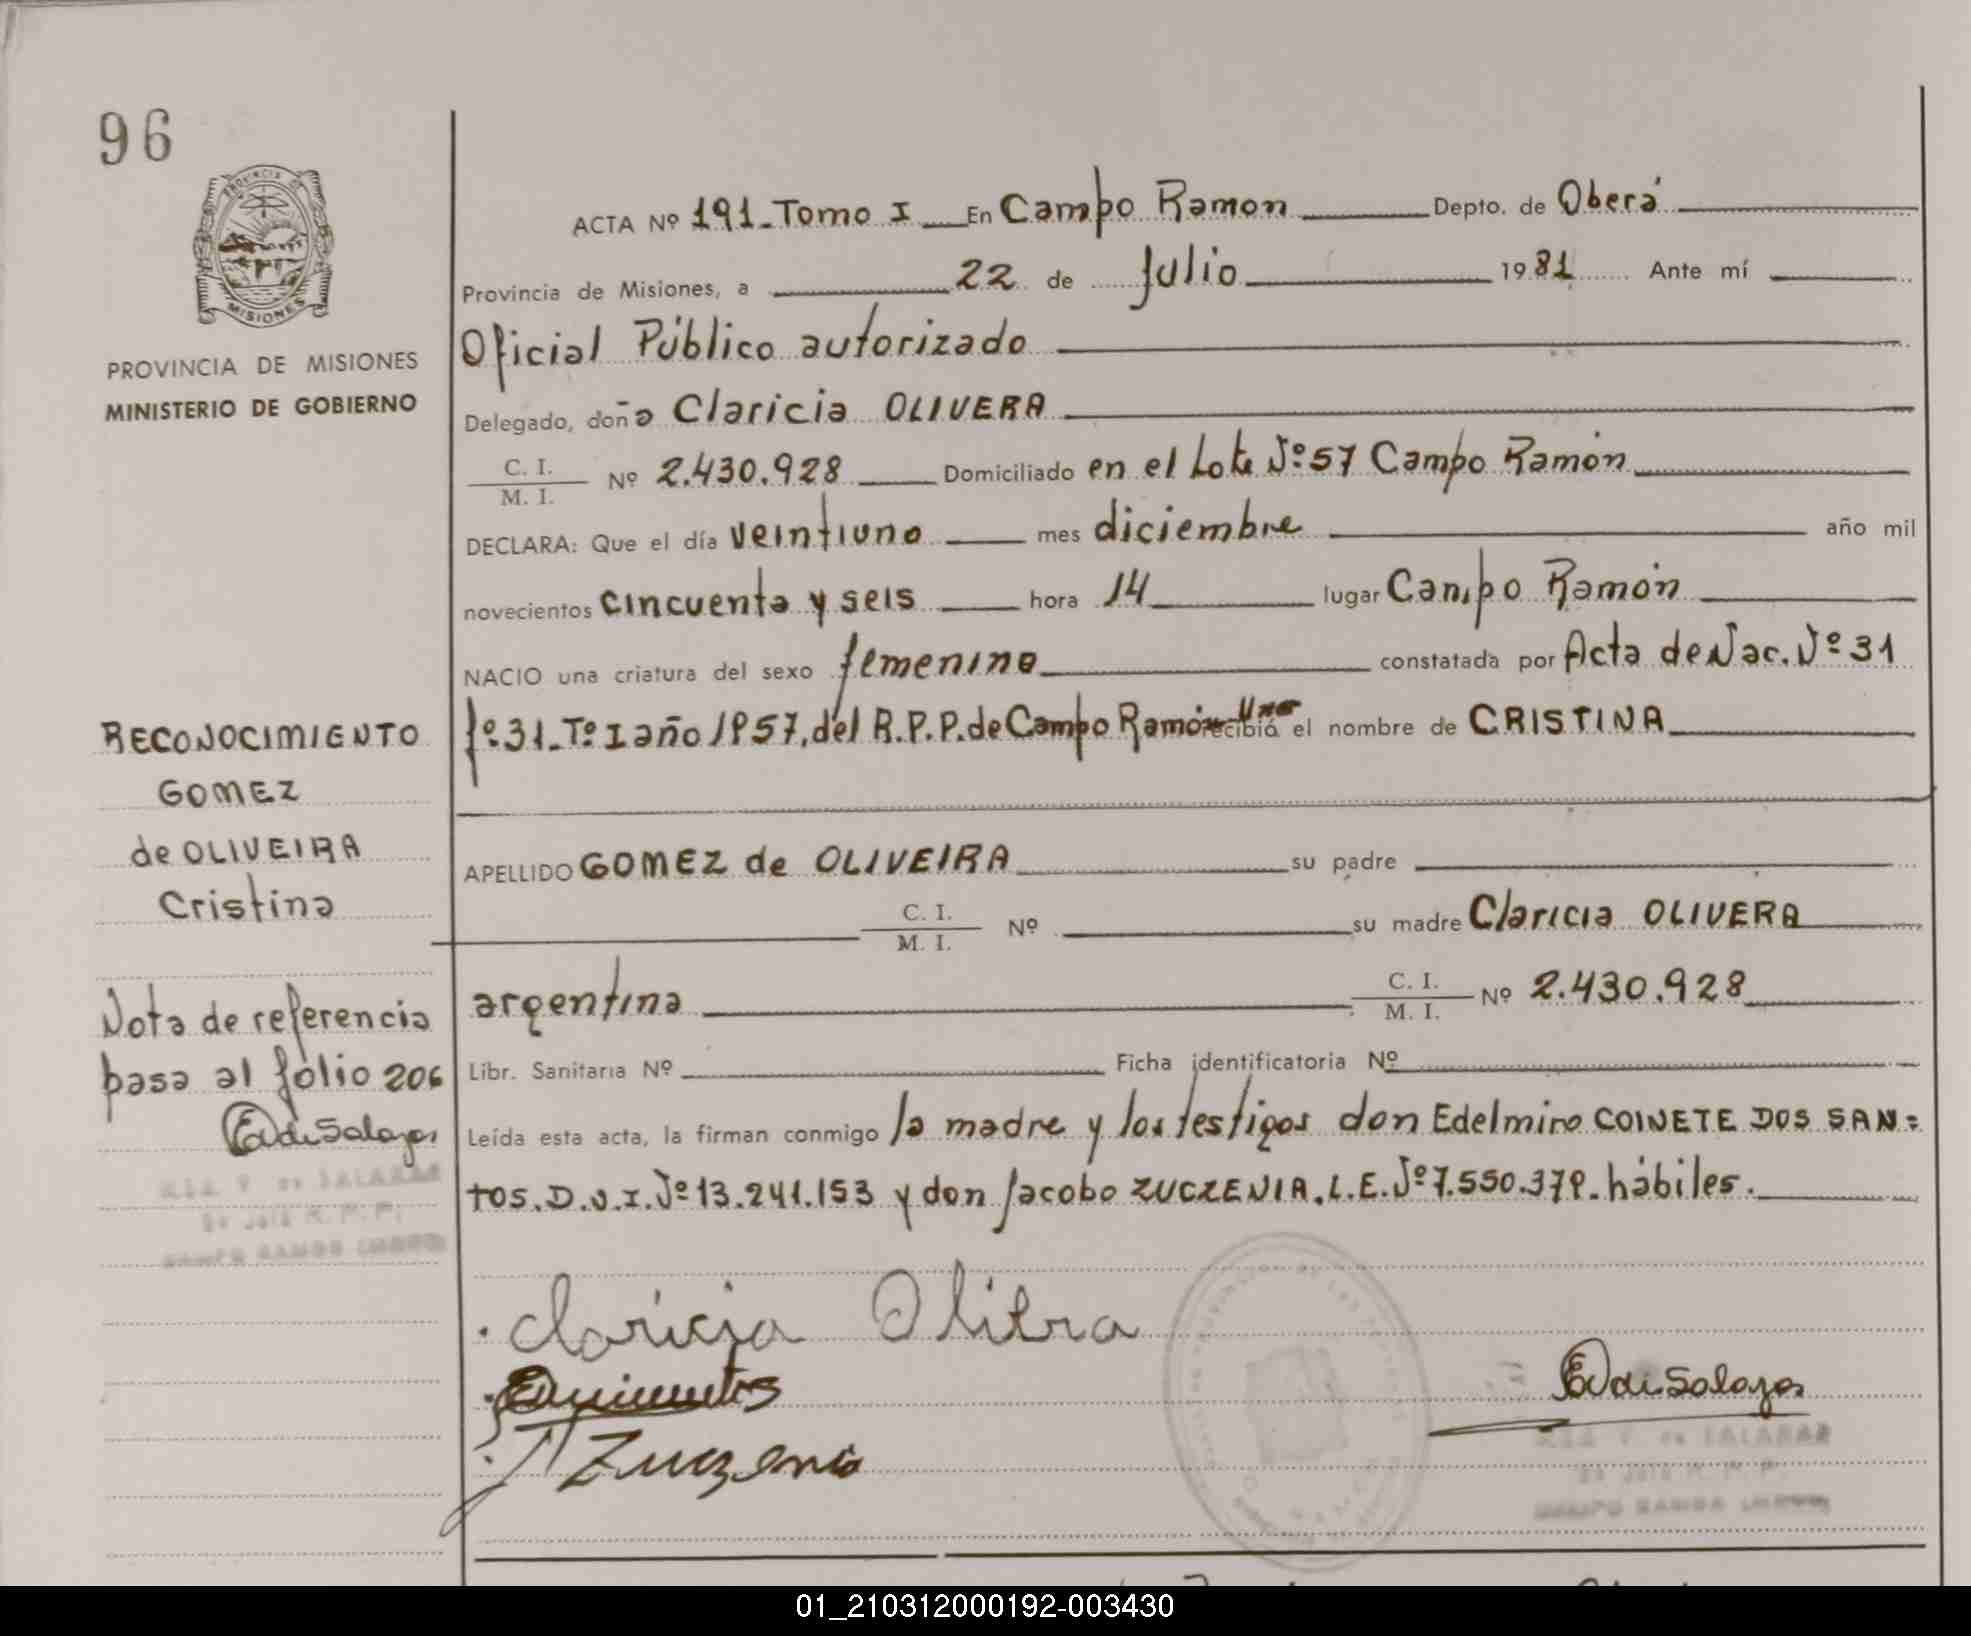 96
PROVINCIA DE MISIONES
MINISTERIO DE GOBIERNO
ACTA Nº 191_Tomo I En Campo Ramon Depto. de Oberá
Provincia de Misiones, a 22 de Julio 1981 Ante mí
Oficial Público autorizado
Delegado, doña Claricia OLIVERA
C. I.
M. I. Nº 2.430.928 Domiciliado en el Lote Nº 57 Campo Ramón
DECLARA: Que el día veintiuno mes diciembre año mil
novecientos cincuenta y seis hora 14 lugar Campo Ramón
NACIO una criatura del sexo femenino constatada por Acta de Nac. Nº 31
fº 31_Tº I año 1957, del R.P.P. de Campo Ramón recibió el nombre de CRISTINA
RECONOCIMIENTO
GOMEZ
de OLIVEIRA
Cristina
APELLIDO GOMEZ de OLIVEIRA su padre
C. I.
M. I. Nº su madre Claricia OLIVERA
argentina C. I.
M. I. Nº 2.430.928
Nota de referencia
pasa al fólio 206
EVdeSalazar
Libr. Sanitaria Nº Ficha identificatoria Nº
Leída esta acta, la firman conmigo la madre y los testigos don Edelmiro COINETE DOS SAN=
TOS. D.N.I. Nº 13.241.153 y don Jacobo ZUCZENIA. L.E. Nº 7.550.379. hábiles.
Claricia Olivra
J Zuczenia
EVdeSalazar
V. de SALAZAR
R. P. P.
CAMPO RAMON
01_210312000192-003430